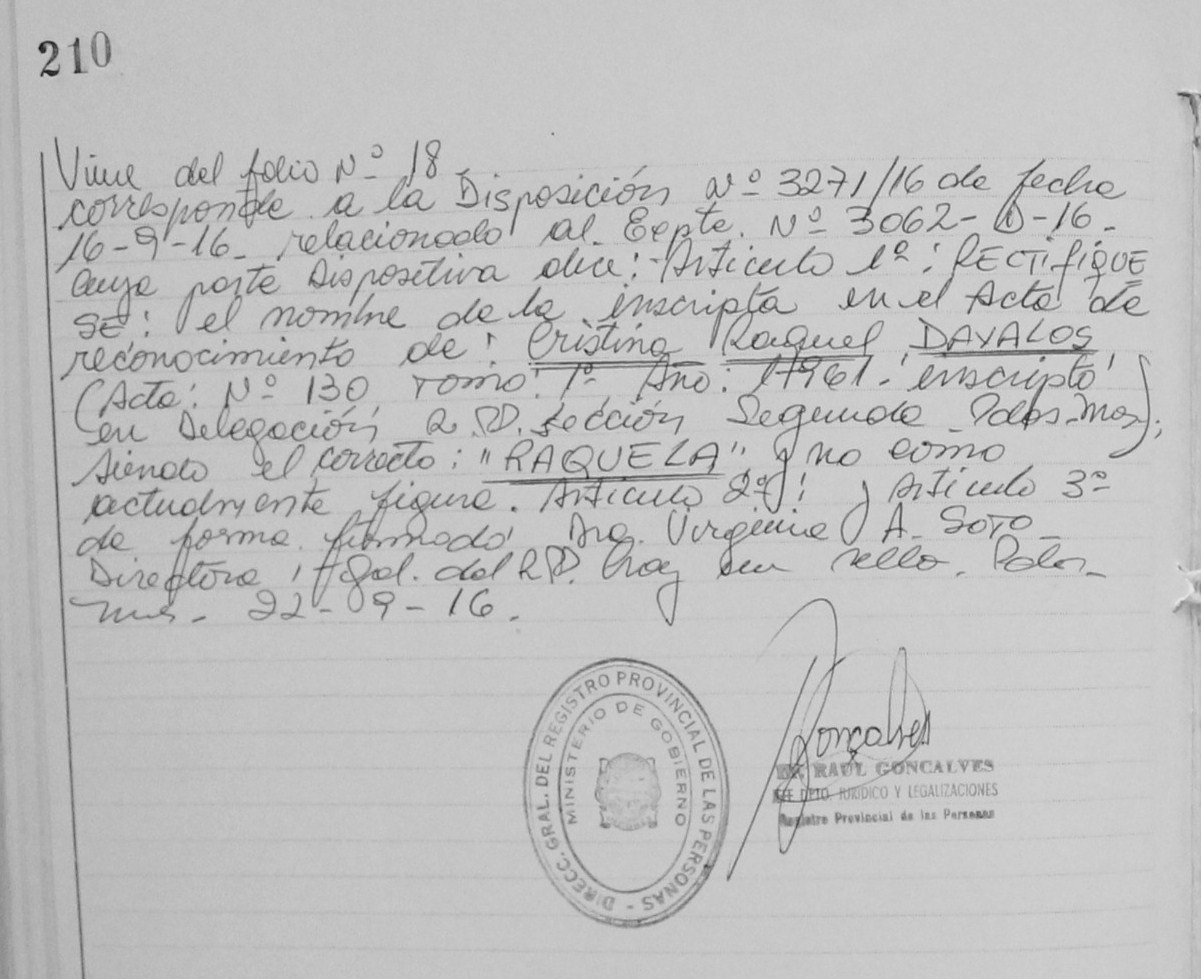 210
Viene del folio Nº 18
corresponde a la Disposición Nº 3271/16 de fecha
16-9-16- relacionado al Expte. Nº 3062- -16-
Cuya parte Dispositiva dice: Artículo 1º: RECTIFÍQUE
SE: el nombre de la inscripta en el Acta de
reconocimiento de: Cristina Raquel DAVALOS
(Acta: Nº 130 Tomo: 1º Año: 1961- inscripto
en Delegación R.P. Sección Segunda Pdas. Mnes);
siendo el correcto: "RAQUELA" y no como
actualmente figura. Artículo 2º: y Artículo 3º
de forma firmado Dra. Virginia A. SOTO
Directora Gral. del R.P. Hay un sello. Pdas-
Mnes. 22-09-16.
DIRECC. GRAL. DEL REGISTRO PROVINCIAL DE LAS PERSONAS -
MINISTERIO DE GOBIERNO
Goncalves
RAUL GONCALVES
JEFE DPTO. JURIDICO Y LEGALIZACIONES
Registro Provincial de las Personas